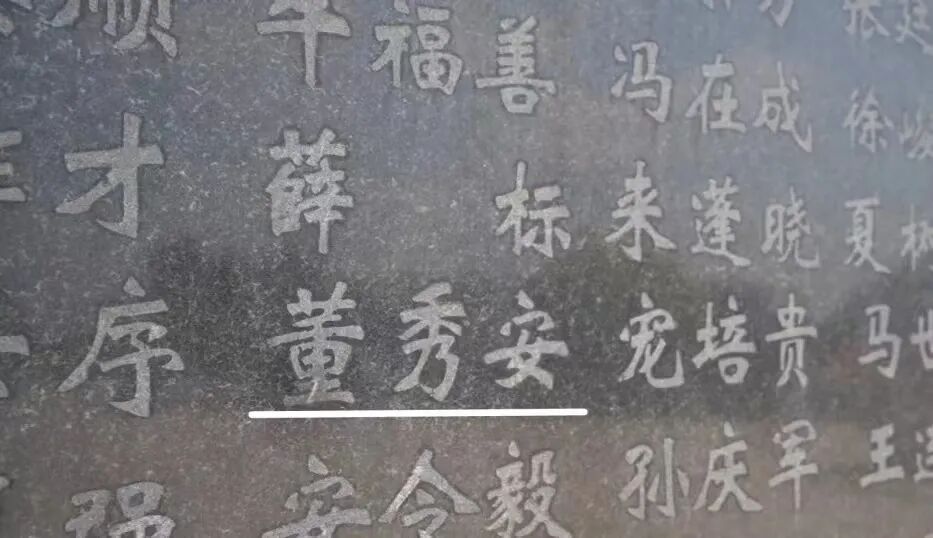 张廷
顺 福善 冯在成 徐峻
才 薛标 来蓬晓 夏树
序 董秀安 宠培贵 马世
强 安令毅 孙庆军 王